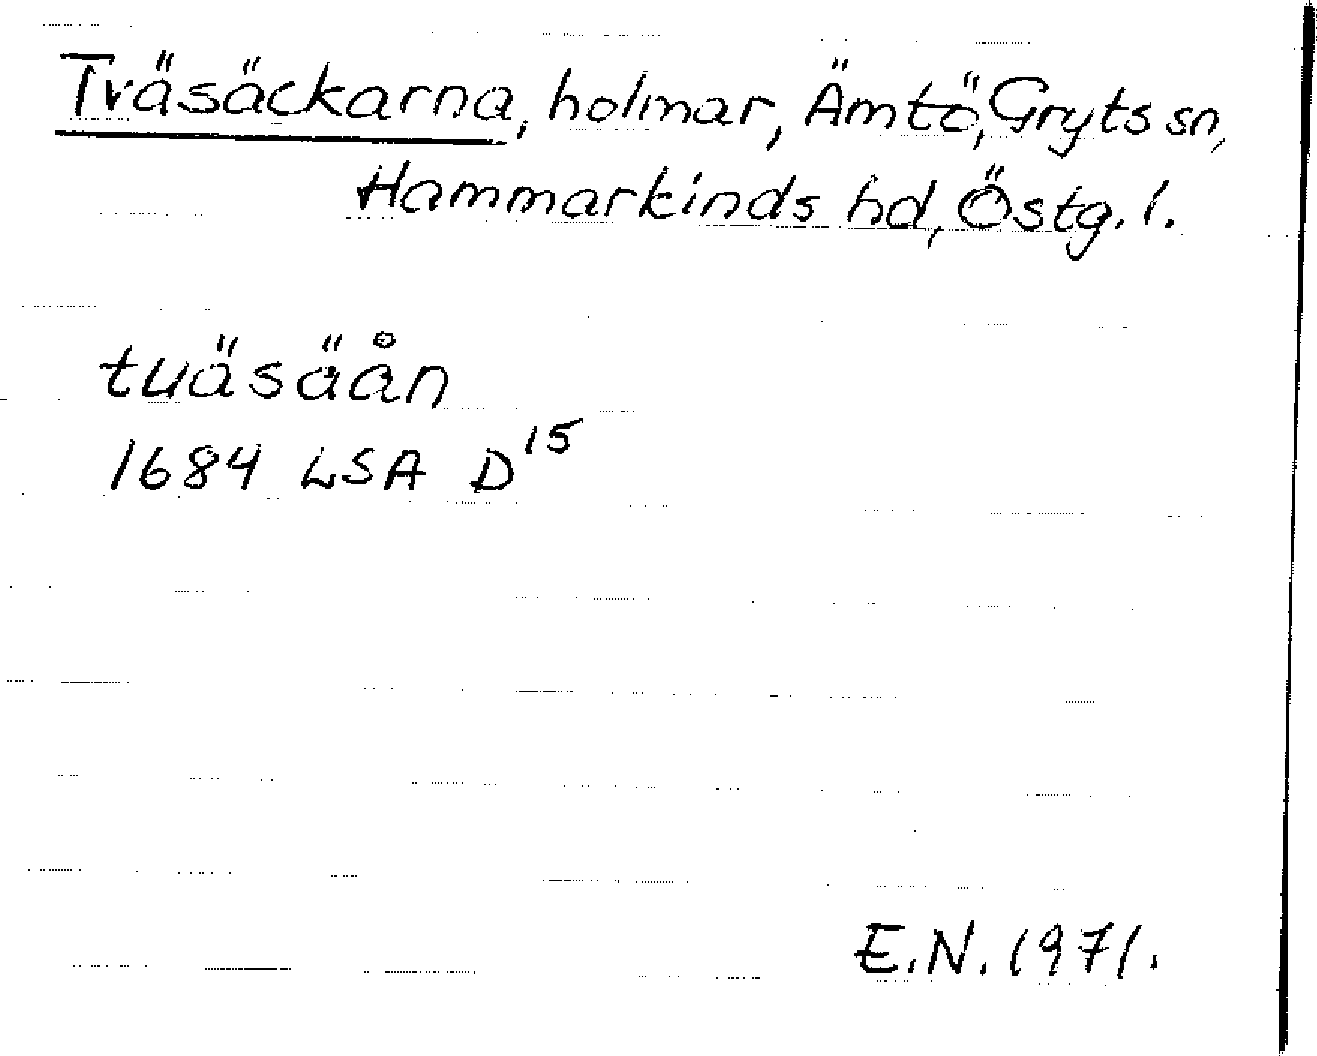 Tväsäckarna, holmar, Ämtö, Gryts sn,
Hammarkinds hd, Östg. l.
tuäsäån
1684 LSA D15
E.N. 1971.